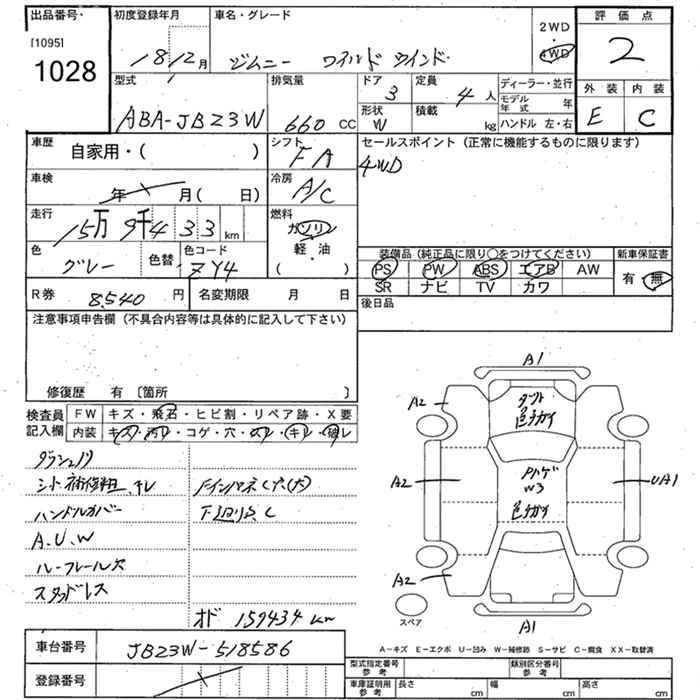 出品番号
[1095]
1028
初度登録年月
18 12月
車名・グレード
ジムニー ワイルド ウインド
2WD
・
4WD
評価点
2
外装 内装
E C
型式
ABA-JB23W
排気量
660 CC
ドア
3
定員
4人
形状
W
積載
kg
ディーラー・並行
モデル年式 年
ハンドル 左・右
車歴
自家用・( )
シフト
FA
セールスポイント(正常に機能するものに限ります)
4WD
車検
年 月( 日)
冷房
A/C
走行
15万9千433km
燃料
ガソリン
軽・油
( )
色
グレー
色替
色コード
ZY4
装備品(純正品に限り○をつけてください)
PS PW ABS エアB AW
SR ナビ TV カワ
新車保証書
有・無
R券 8,540円
名変期限 月 日
後日品
注意事項申告欄(不具合内容等は具体的に記入して下さい)
修復歴 有〔箇所 〕
検査員記入欄
FW キズ・飛石・ヒビ割・リペア跡・X要
内装 キズ・汚レ・コゲ・穴・スレ・キレ・破レ
シート補修粗、キレ
ハンドルカバー
A.U.W
ルーフレール欠
スタッドレス
下廻りS.C
オド 159434km
A1
A2
A2
A2
UA1
A1
色チガイ
Pハゲ
W3
色チガイ
スペア
A-キズ E-エクボ U-凹み W-補修跡 S-サビ C-腐食 XX-取替済
車台番号 JB23W-518586
登録番号
型式指定番号 参考
類別区分番号 参考
車庫証明用 参考
長さ cm 幅 cm 高さ cm